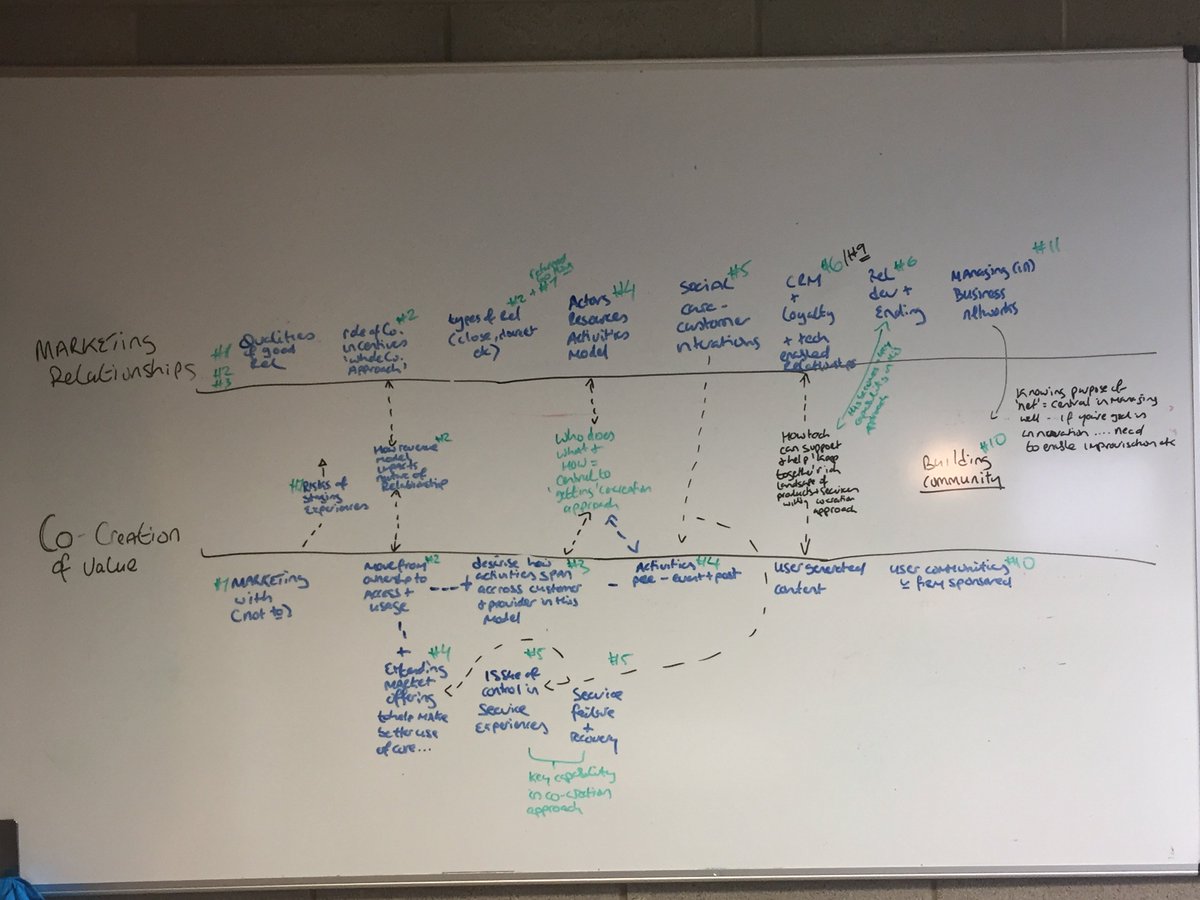 MARKETING
Relationships
#1
#2
#3
Qualities
of good
Rel
#2
role of Co.
incentives
'whole Co.
Approach'
#2
types of Rel
(close, market
etc)
#4
Actors
Resources
Activities
Model
#5
Social
care -
customer
interations
#6/#9
CRM
+
Loyalty
+ tech
enabled
Relationships
#6
Rel
dev +
Ending
#11
MANAging (in)
Business
Networks
#2
How revenue
model
impacts
nature of
Relationship
Risks of
staging
Experiences
who does
what +
How =
central to
'getting' cocreation
approach
How tech
can support
+ help 'keep
together' rich
landscape of
products + services
approach
#10
Building
community
Knowing purpose of
'net' = central in Managing
well - if you're goal is
innovation .... need
to enable improvisation etc
Co-Creation
of value
#1 MARKETING
with
(not to)
#2
Move from
ownership to
Access +
usage
#3
describe how
activities span
accross customer
+ provider in this
Model
#4
Activities
pre - event + post
User generated
content
#10
user communities
v firm sponsored
+
#4
Extending
MARKET
offering
to help MAKE
better use
of core...
#5
Issue of
control in
Service
Experiences
#5
Service
failure
+
recovery
key capability
in co-creation
approach